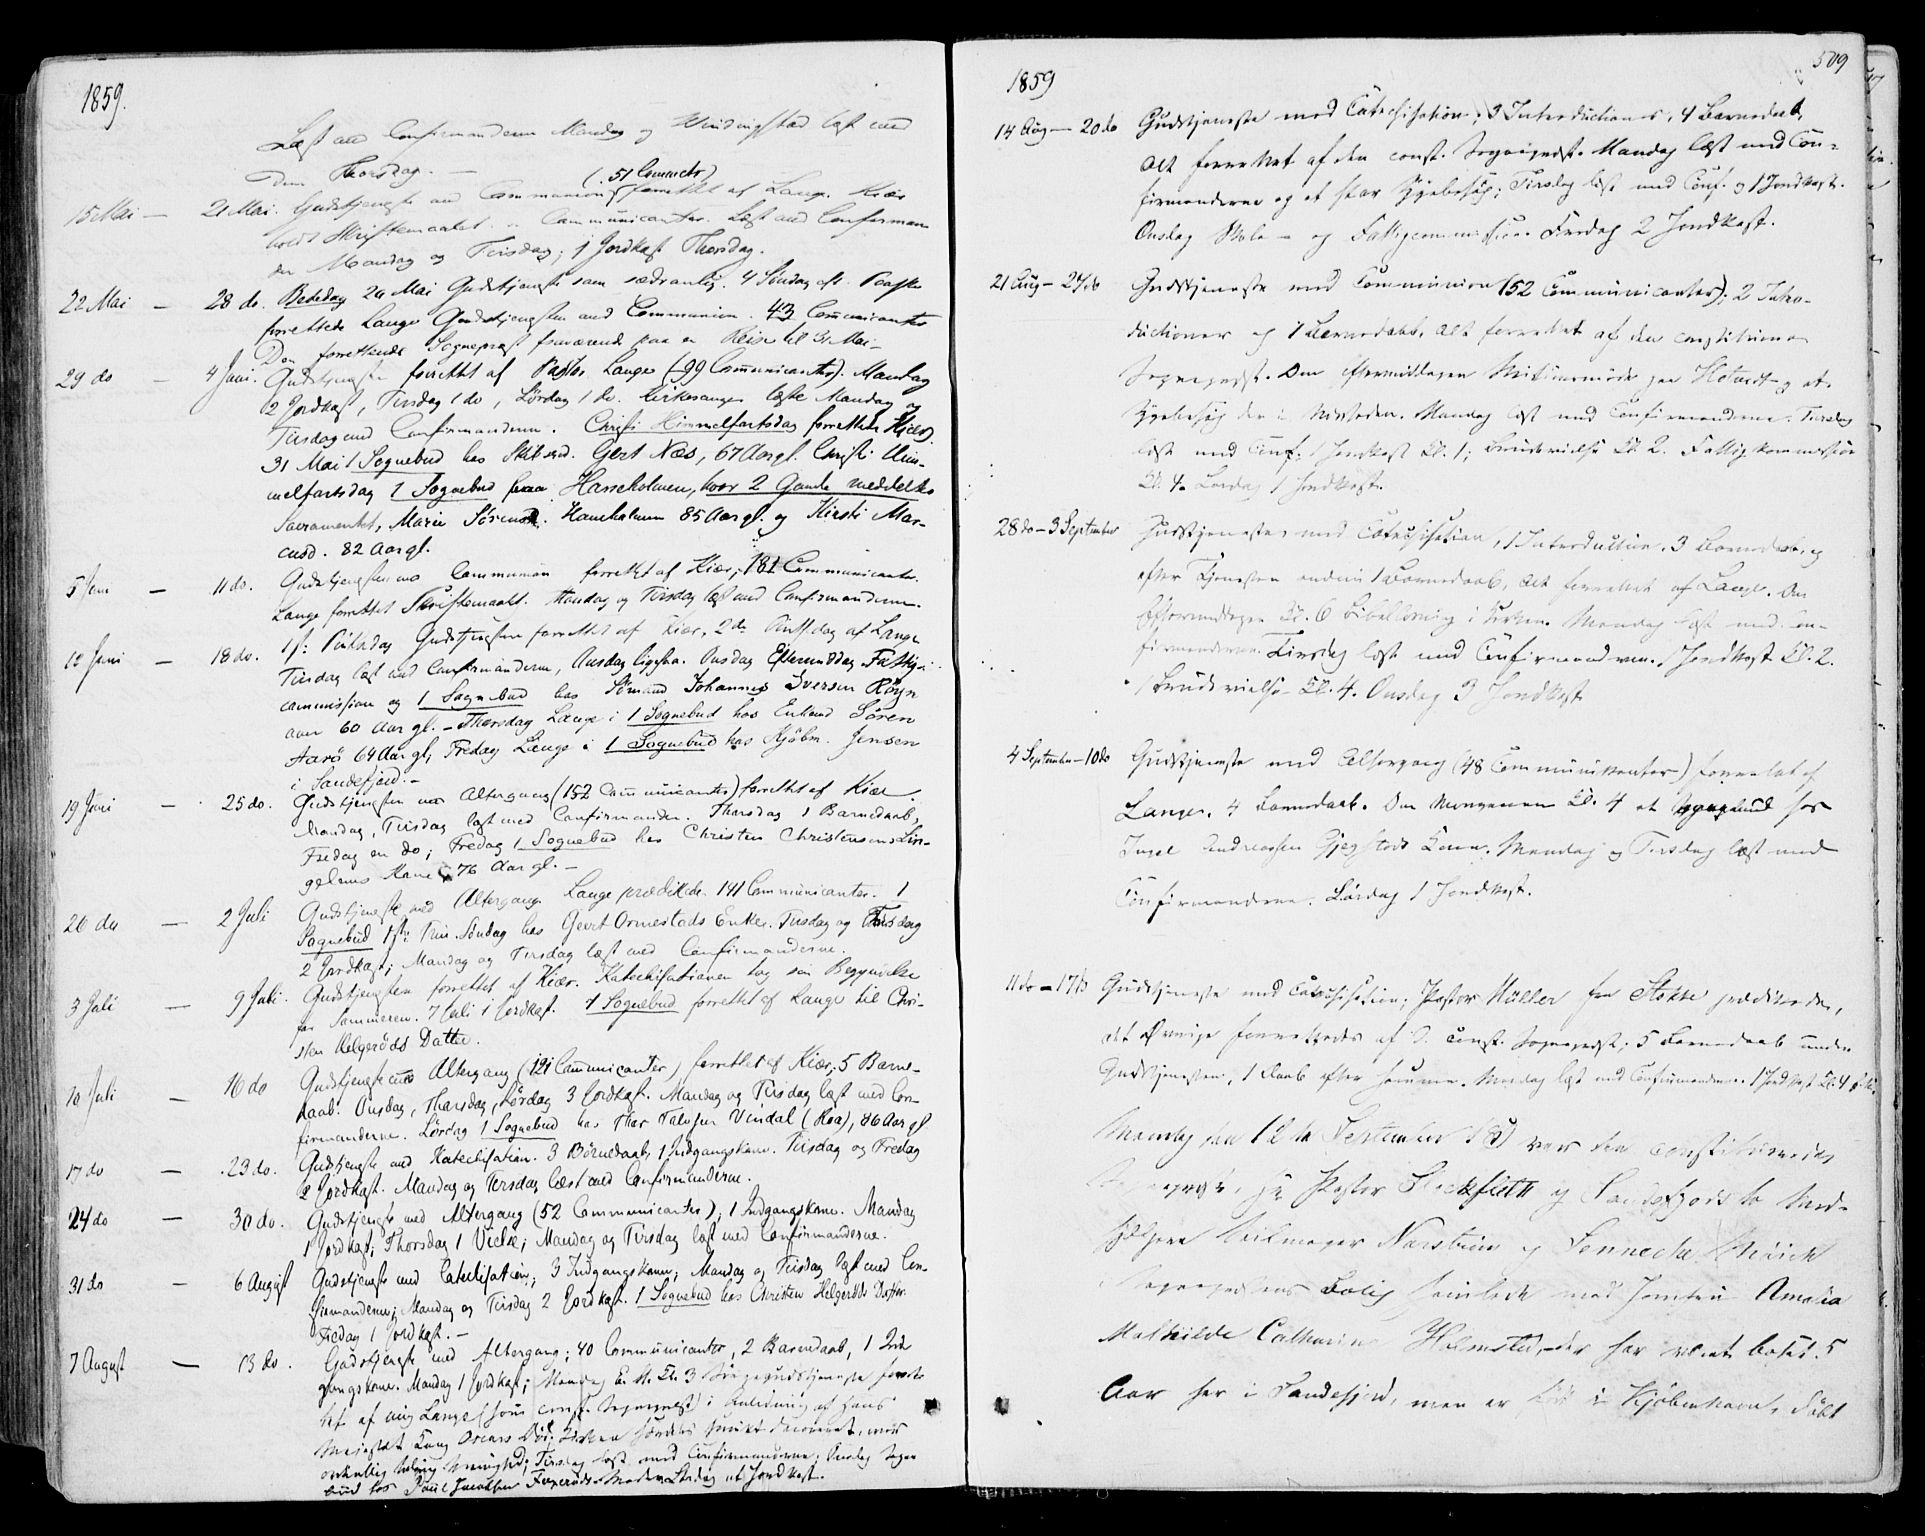 1859.
Læst med Confirmanderne Mandag og læst med
dem Thorsdag. — (51 Communic)
15 Mai — 21 Mai. Gudstjeneste med Communion forrettet af Lange. Kiær
holdt Skriftemaalet. Communicanter. Læst med Confirman
der Mandag og Tirsdag; 1 Jordkast Thorsdag.
22 Mai — 28 do. Bededag 20 Mai Gudstjeneste som sædvanlig. 4 Søndag eft. Paaske
forrettede Lange Gudstjenesten med Communion. 43 Communicanter
Den forrettende Sognepræst fraværende paa en Reise til 31 Mai—
29 do — 4 Juni. Gudstjenesten forrettet af Pastor Lange (99 Communicanter). Mandag
2 Jordkast, Tirsdag 1 do, Lördag 1 do. Kirkesanger læste Mandag og
Tirsdag med Confirmanderne. Christi Himmelfartsdag forrettede Kiær.
31 Mai 1 Sognebud hos Gert Næs, 67 Aar gl. Christi Him-
melfartsdag 1 Sognebud paa Hasseholmen, hvor 2 Gamle meddeltes
Sacramentet, Marie Sörensd. 85 Aar gl. og Kirsti Mar-
cusd. 82 Aar gl.
5 Juni — 11 do. Gudstjenesten med Communion forrettet af Kiær; 181 Communicanter.
Lange forrettet Skriftemaalet. Mandag og Tirsdag læst med Confirmanderne.
12 Juni — 18 do. 1st: Pintsedag Gudstjenesten forrettet af Kiær, 2de Pintsdag af Lange
Tirsdag læst med Confirmanderne, Onsdag ligesaa. Onsdag Eftermiddag Fattig-
commission og 1 Sognebud hos Sömand Johannes Iversen Röyn
aar 60 Aar gl. — Thorsdag Lange i 1 Sognebud hos Enkem. Sören
Aarö 64 Aar gl, Fredag Lange i 1 Sognebud hos Kjöbm. Jensen
i Sandefjord. —
19 Juni — 25 do. Gudstjenesten med Altergang (152 Communicanter) forrettet af Kiær.
Mandag, Tirsdag læst med Confirmander. Thorsdag 1 Barnedaab,
Fredag en do; Fredag 1 Sognebud hos Christen Christensens Lin-
gelems Kone, 76 Aar gl. —
26 do — 2 Juli Gudstjeneste med Altergang Lange prædikede. 141 Communicanter. 1
Sognebud 1ste Trin. Söndag hos Gevrt Ormestads Enke. Tirsdag og
2 Jordkast; Mandag og Tirsdag læst med Confirmanderne.
3 Juli — 9 Juli. Gudstjenesten forrettet af Kiær. Katechisationen tog sin Begyndelse
for Sommeren. 7 Juli 1 Jordkast. 1 Sognebud forrettet af Lange til Chri-
sten Helgeröds Datter.
10 Juli — 16 do Gudstjeneste med Altergang (121 Communicanter) forrettet af Kiær; 5 Barne-
daab. Onsdag, Thorsdag, Lördag 3 Jordkast. Mandag og Tirsdag læst med Con-
firmanderne. Lördag 1 Sognebud hos Thor Virdal (Roa), 86 Aar gl.
17 do — 23 do. Gudstjeneste med Katechisation. 3 Börnedaab, 1 Indgangskone. Tirsdag og Fredag
2 Jordkast. Mandag og Tirsdag læst med Confirmanderne.
24 do — 30 do. Gudstjeneste med Altergang (52 Communicanter); 1 Indgangskone. Mandag
1 Jordkast; Thorsdag 1 Vielse; Mandag og Tirsdag læst med Confirmanderne.
31 do — 6 August Gudstjeneste med Catechisation; 3 Indgangskoner; Mandag og Tirsdag læst med Con-
firmanderne; Mandag og Tirsdag 2 Jordkast. 1 Sognebud hos Christen Helgeröds Datter.
Fredag 1 Jordkast. —
7 August — 13 do. Gudstjeneste med Altergang; 40 Communicanter, 2 Barnedaab, 1 Ind
gangskone. Mandag 1 Jordkast; Mandag E. M. Kl. 3 Sörgegudstjeneste forret-
tet af mig Lange som const. Sognepræst i Anledning af Hans
Majestæt Kong Oscars Död;
Tirsdag læst med Confirmanderne; Onsdag Sogne
bud hos Poul Jacobsen Moder. Lördag et Jordkast.
509
1859
14 Aug — 20 do Gudstjeneste med Catechisation; 3 Introductioner, 4 Barnedaab,
Alt forrettet af den const. Sognepræst. Mandag læst med Con-
firmanderne og et stor Sygebesög; Tirsdag læst med Conf. og 1 Jordkast.
Onsdag Skole- og Fattigcommission. Fredag 2 Jordkast.
21 Aug — 27 do Gudstjeneste med Communion (52 Communicanter); 2 Intro-
ductioner og 1 Barnedaab. Alt forrettet af den constituerede
Sognepræst. Om Eftermiddagen Missionsmöde paa og et
Sygebesög der i Nærheden. Mandag læst med Confirmanderne. Tirsdag
læst med Conf. 1 Jordkast Kl. 1; Brudevielse Kl. 2. Fattigkommission
Kl. 4. Lördag 1 Jordkast.
28 do — 3 September Gudstjeneste med Catechisation, 1 Introduction. 3 Barnedaab, og
efter Tjenesten endnu 1 Barnedaab, Alt forrettet af Lange. Om
Eftermiddagen Kl. 6 Bibellæsning i Kirken. Mandag læst med Con-
firmanderne. Tirsdag læst med Confirmanderne. 1 Jordkast Kl. 2.
1 Brudevielse Kl. 4. Onsdag 3 Jordkast
4 September — 10 do Gudstjeneste med Altergang (48 Communikanter) forrettet af
Lange. 4 Barnedaab. Om Morgenen Kl. 4 et Sognebud hos
Andreassen Gjegstads Kone. Mandag og Tirsdag læst med
Confirmanderne. Lördag 1 Jordkast.
11 do — 17 do Gudstjeneste med Catechisation; Pastor Müller fra Stokke prædikede,
det Övrige forrettedes af d. const. Sognepræst; 5 Barnedaab under
Gudstjenesten, 1 Daab efter samme. Mandag læst med Confirmanderne. 1 Jordkast Kl. 4
Mandag den 12te September var den constituerede
Sognepræst, Hr Pastor og Sandefjords to Med-
hjælpere Seilmager Norström og
Sognepræstens Bolig samlede med Jomfru Amalia
Mathilde Catharine Holmsted, der har været bosat 5
Aar her i Sandefjord, men er i Kjöbenhavn, Födt